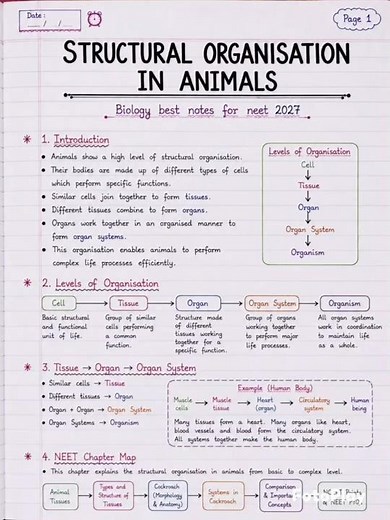 Date :
__ / __ / __
Page 1
STRUCTURAL ORGANISATION
IN ANIMALS
Biology best notes for neet 2027
1. Introduction
Animals show a high level of structural organisation.
Their bodies are made up of different types of cells
which perform specific functions.
Similar cells join together to form tissues.
Different tissues combine to form organs.
Organs work together in an organised manner to
form organ systems.
This organisation enables animals to perform
complex life processes efficiently.
Levels of Organisation
Cell
↓
Tissue
↓
Organ
↓
Organ System
↓
Organism
2. Levels of Organisation
Cell → Tissue → Organ → Organ System → Organism
Basic structural
and functional
unit of life.
Group of similar
cells performing
a common
function.
Structure made
of different
tissues working
together for a
specific function.
Group of organs
working together
to perform major
life processes.
All organ systems
work in coordination
to maintain life
as a whole.
3. Tissue → Organ → Organ System
Similar cells → Tissue
Different tissues → Organ
Organ + Organ → Organ System
Organ Systems → Organism
Example (Human Body)
Muscle cells → Muscle tissue → Heart (organ) → Circulatory system → Human being
Many tissues form a heart. Many organs like heart,
blood vessels and blood form the circulatory system.
All systems together make the human body.
4. NEET Chapter Map
This chapter explains the structural organisation in animals from basic to complex level.
Animal
Tissues
Types and
Structure of
Tissues
Cockroach
(Morphology
& Anatomy)
Systems in
Cockroach
Comparison
& Important
Concepts
& NEET PYQs